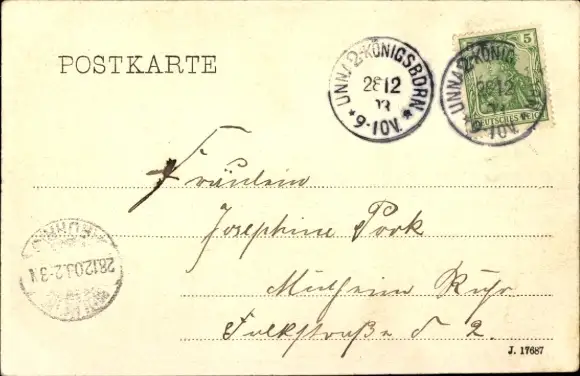 POSTKARTE
UNNA 2-KÖNIGSBORN
28 12
03
* 9-10V. *
5
UNNA 2-KÖNIG
28 12
* 9-10V.
DEUTSCHES REICH
Fräulein
Josephine Pook
Mülheim Ruhr
28.12.03.2-3N
2.
J. 17687